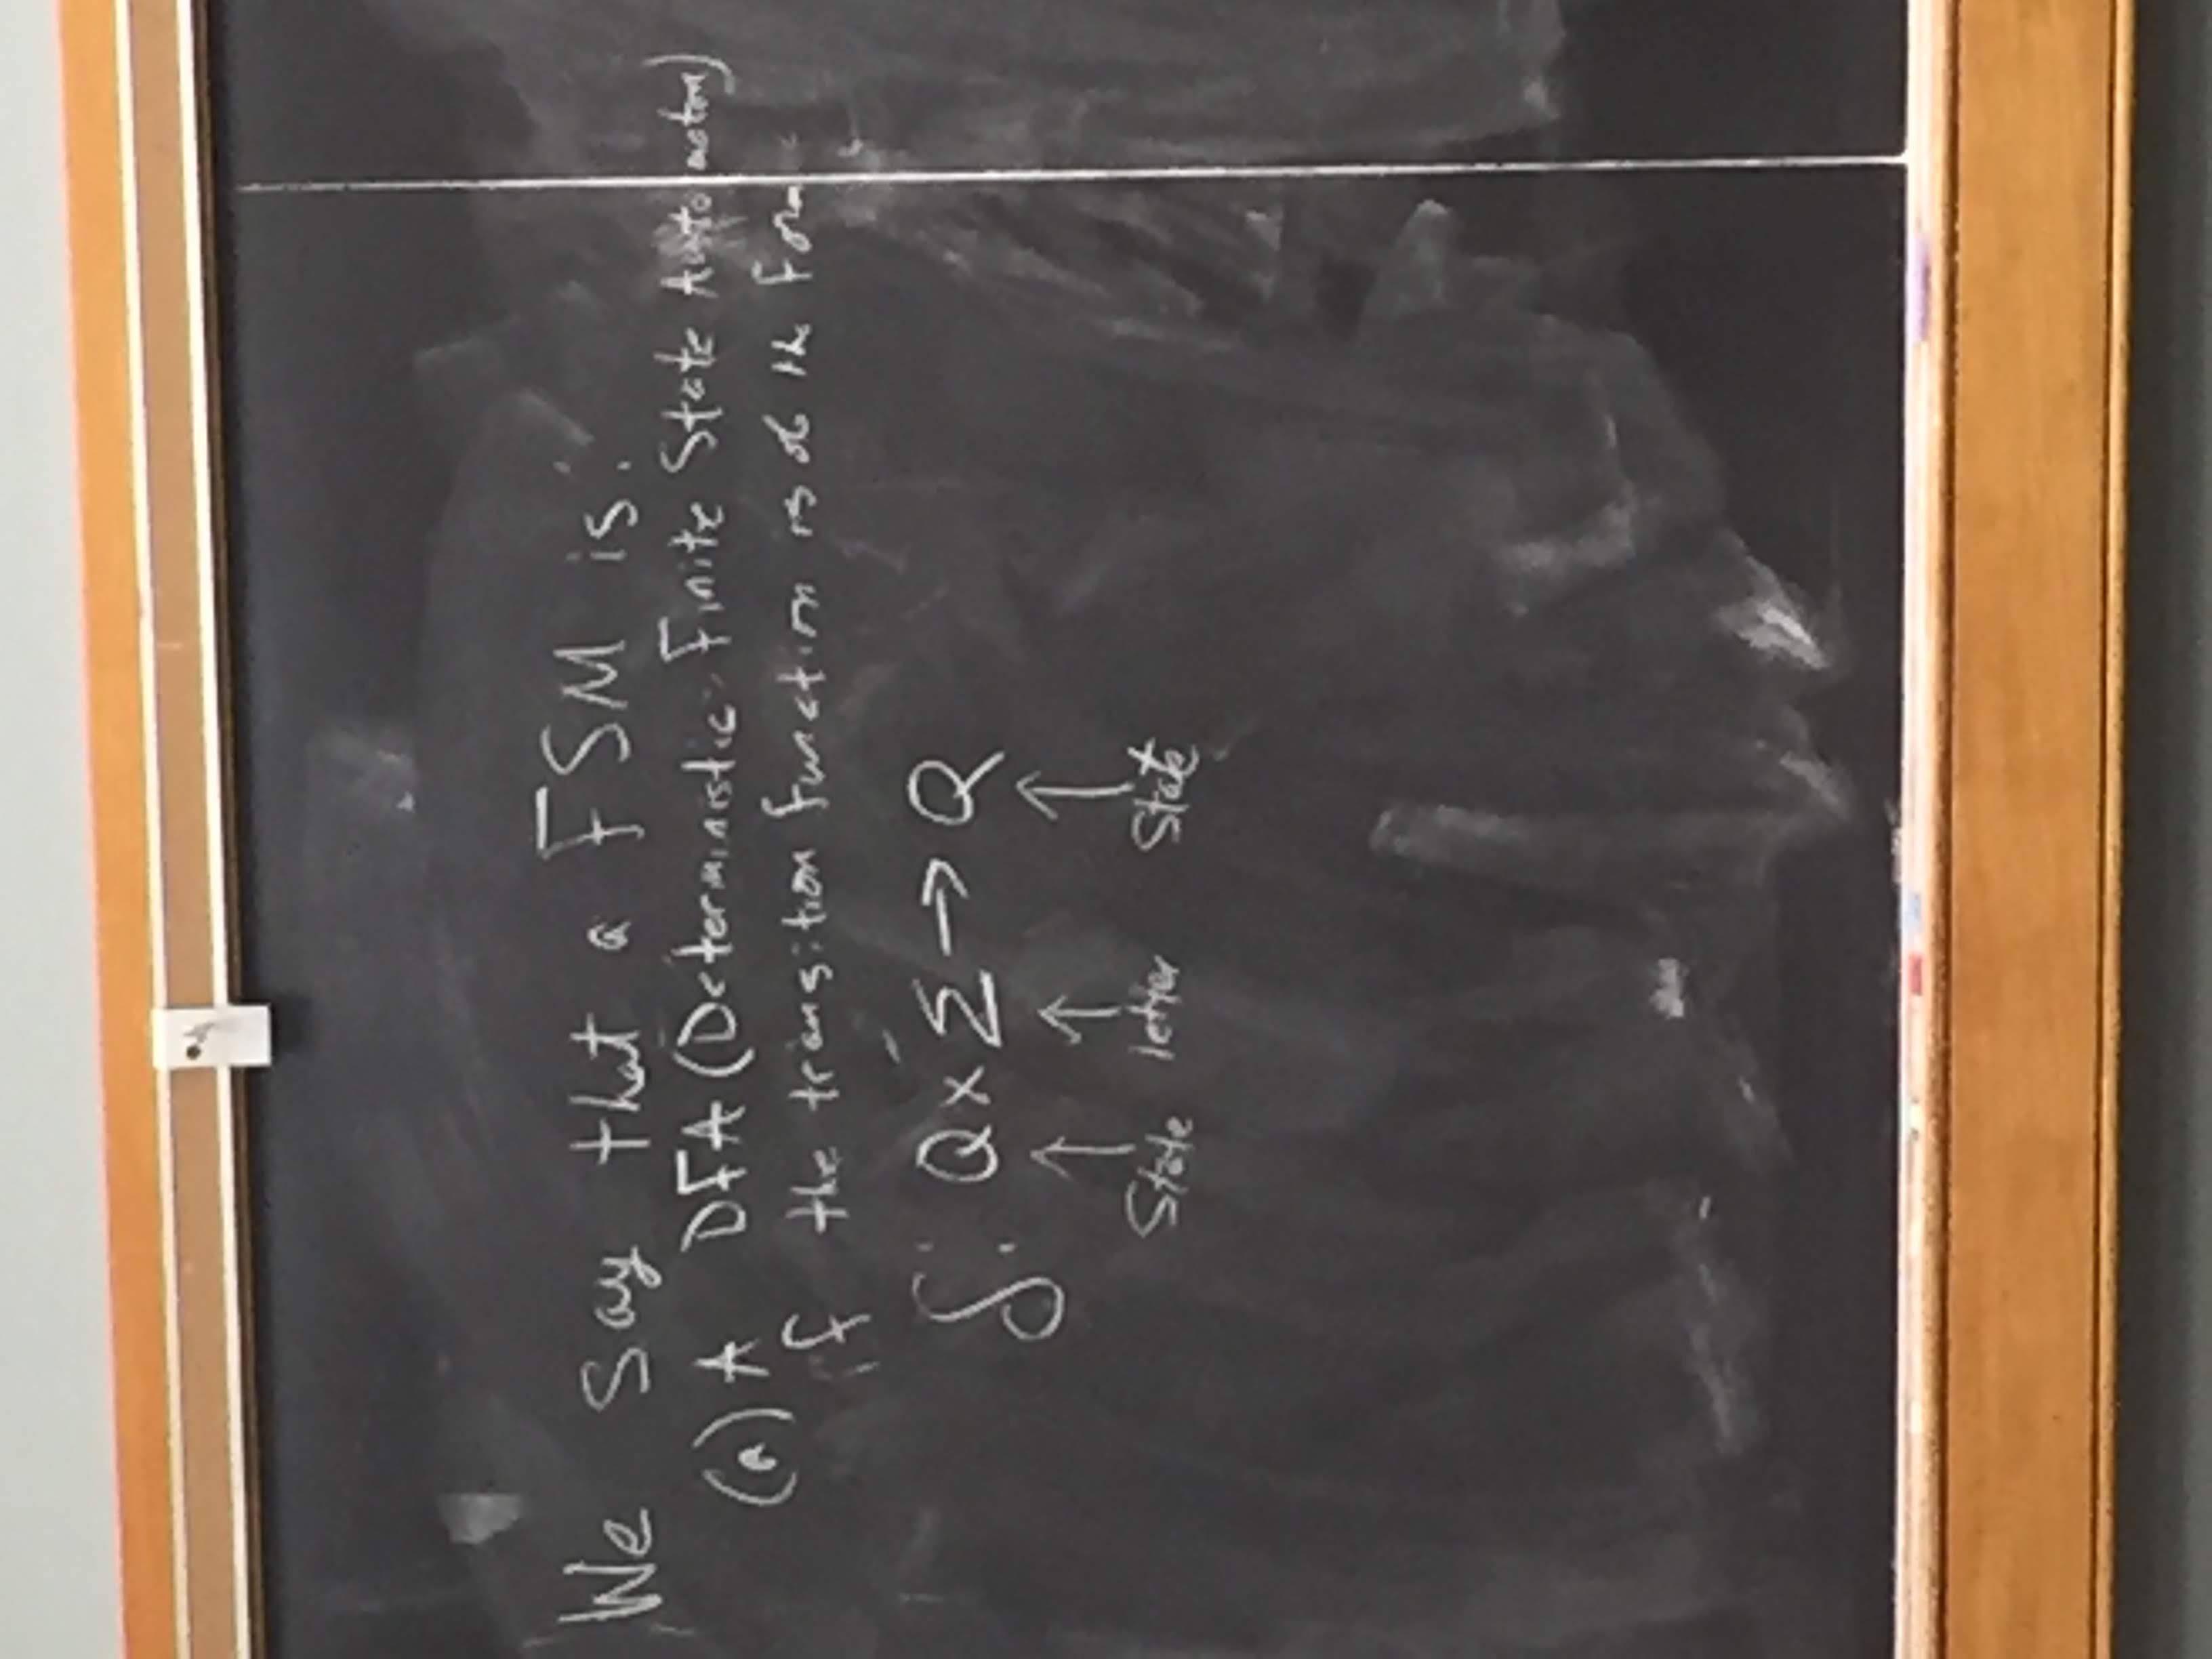 We say that a FSM is:
(a) A DFA (Deterministic Finite State Automaton)
if the transition function is of the form
δ: Q x Σ → Q
↑ ↑ ↑
State letter State